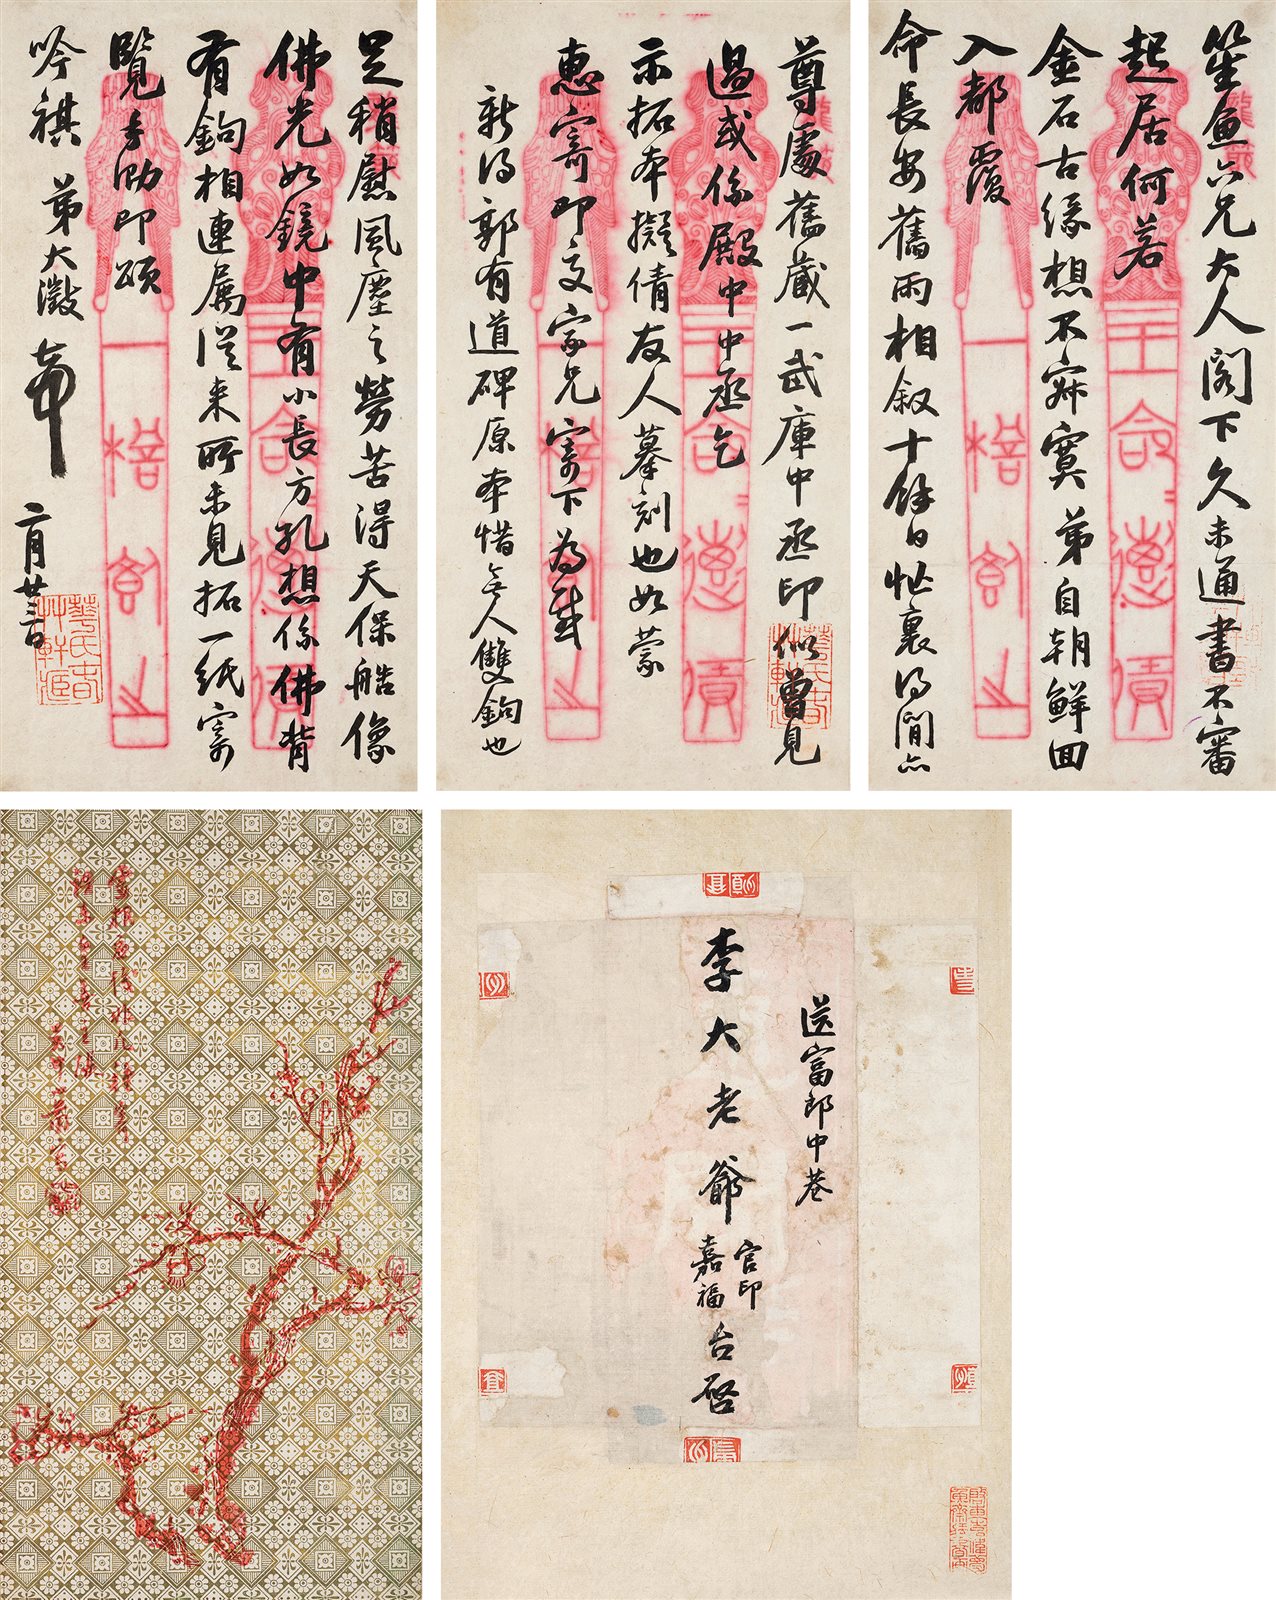 笙魚六兄大人閣下久未通書不審
起居何若
金石古緣想不寂寞弟自朝鮮回
入都覆
命長安舊雨相敘十餘日忙裏得閒亦
尊處舊藏一武庫中丞印似曾見
過或係殿中中丞乞
示拓本擬倩友人摹刻也如蒙
惠寄即交家兄寄下為感
新得郭有道碑原本惜無人雙鉤也
足稍慰風塵之勞苦得天保造像
佛光如鏡中有小長方孔想係佛背
有鉤相連屬從來所未見拓一紙寄
覽手泐即頌
吟祺 弟大澂頓首
二月廿三日
送富郎中巷
李大老爺
官印
嘉福
台啟